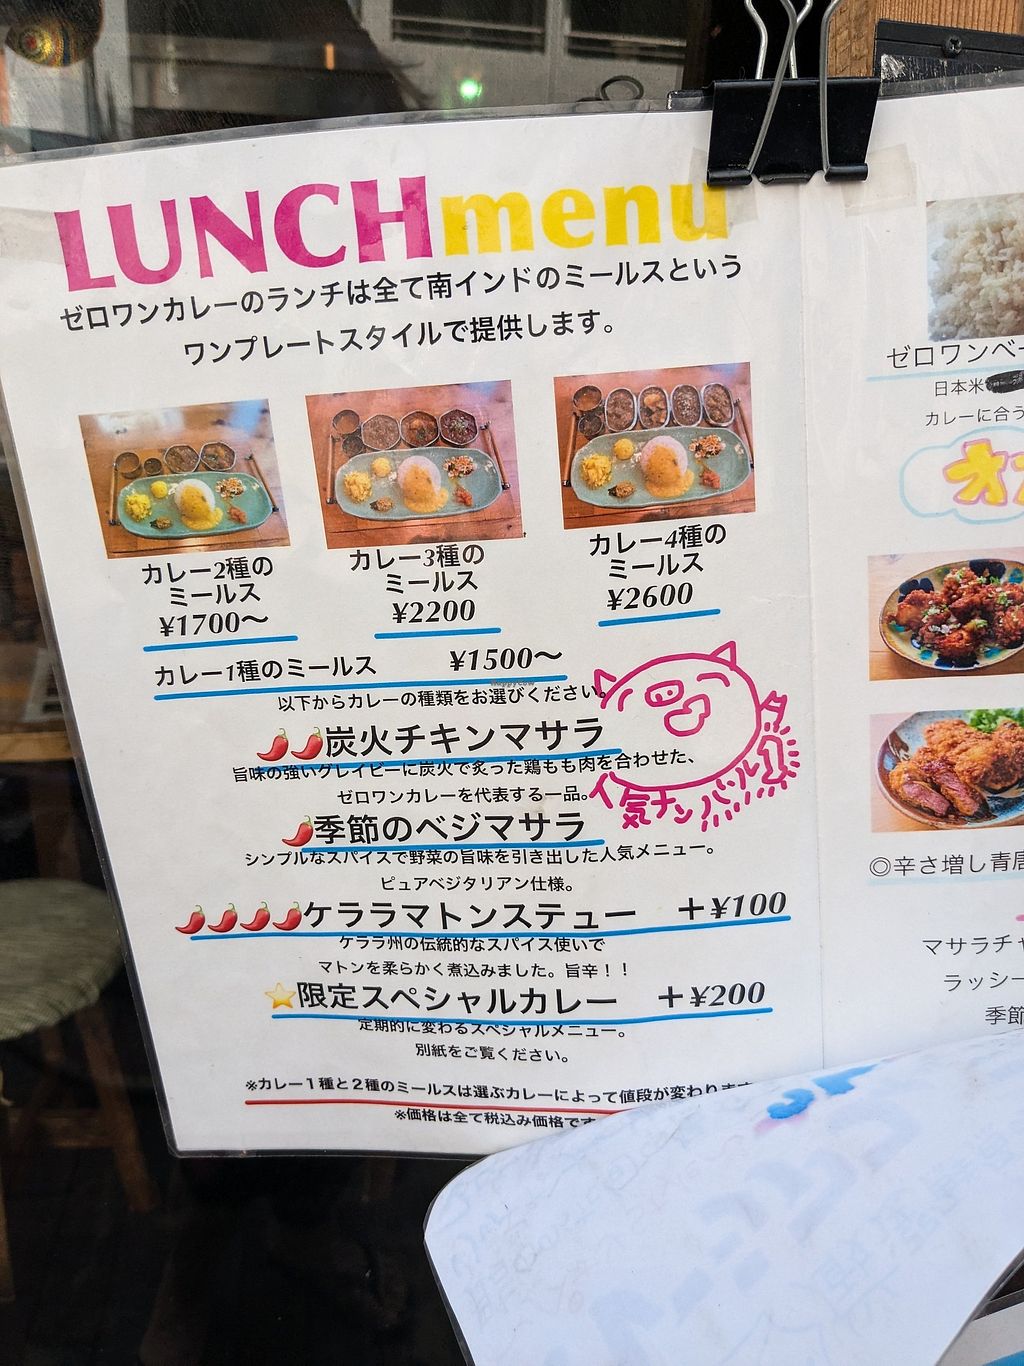 LUNCHmenu
ゼロワンカレーのランチは全て南インドのミールスという
ワンプレートスタイルで提供します。
カレー2種の
ミールス
¥1700〜
カレー3種の
ミールス
¥2200
カレー4種の
ミールス
¥2600
カレー1種のミールス ¥1500〜
以下からカレーの種類をお選びください。
炭火チキンマサラ
旨味の強いグレイビーに炭火で炙った鶏もも肉を合わせた、
ゼロワンカレーを代表する一品。
人気ナンバー1
季節のベジマサラ
シンプルなスパイスで野菜の旨味を引き出した人気メニュー。
ピュアベジタリアン仕様。
ケララマトンステュー +¥100
ケララ州の伝統的なスパイス使いで
マトンを柔らかく煮込みました。旨辛！！
限定スペシャルカレー +¥200
定期的に変わるスペシャルメニュー。
別紙をご覧ください。
※カレー１種と２種のミールスは選ぶカレーによって値段が変わります
※価格は全て税込み価格です
ゼロワンベー
日本米
カレーに合う
オ
◎辛さ増し青唐
マサラチャ
ラッシー
季節